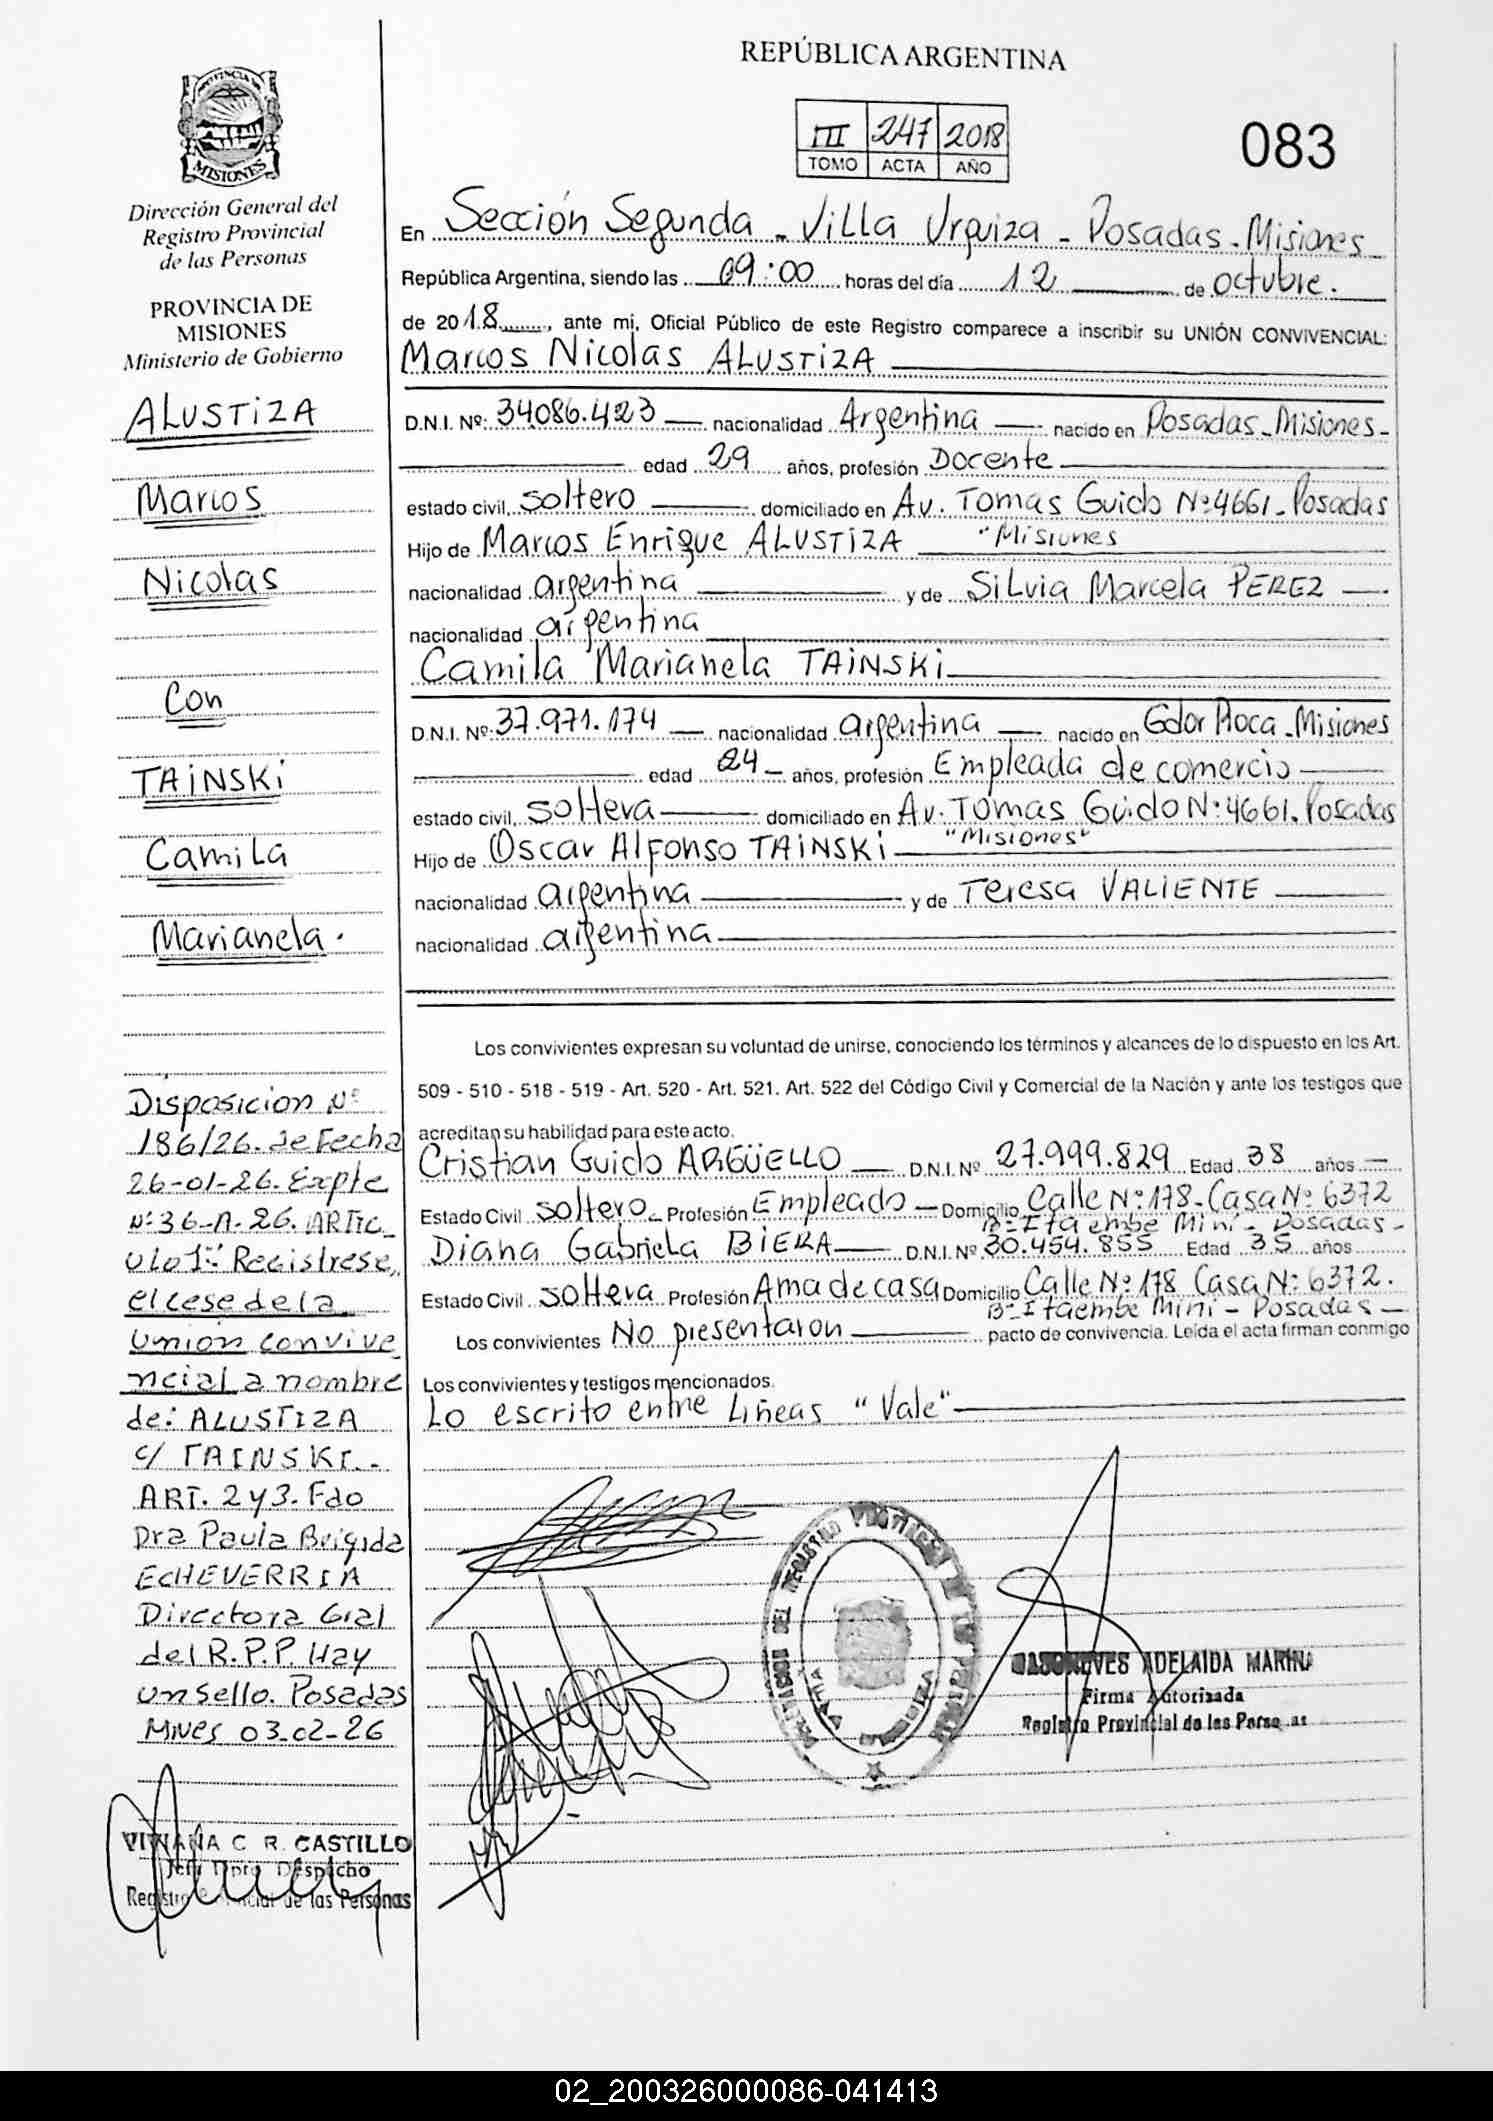 REPÚBLICA ARGENTINA
III 247 2018
TOMO ACTA AÑO
083
PROVINCIA DE MISIONES
Dirección General del
Registro Provincial
de las Personas
PROVINCIA DE
MISIONES
Ministerio de Gobierno
ALUSTIZA
Marcos
Nicolas
Con
TAINSKI
Camila
Marianela.
Disposicion Nº
186/26. de Fecha
26-01-26. Expte
Nº 36-A-26. ARTIC
ULO 1º Registrese,
el cese de la
union convive
ncial a nombre
de: ALUSTIZA
c/ TAINSKI.-
ART. 2 y 3. Fdo
Dra Paula Brigida
ECHEVERRIA
Directora Gral
del R.P.P. Hay
un sello. Posadas
Mnes 03-02-26
VIVIANA C. R. CASTILLO
Jefe Dpto Despacho
Registro Provincial de las Personas
En Sección Segunda - Villa Urquiza - Posadas - Misiones
República Argentina, siendo las 09:00 horas del día 12 de octubre.
de 2018, ante mi, Oficial Público de este Registro comparece a inscribir su UNIÓN CONVIVENCIAL:
Marcos Nicolas ALUSTIZA
D.N.I. Nº: 34.086.423 nacionalidad Argentina nacido en Posadas - Misiones -
edad 29 años, profesión Docente
estado civil, soltero domiciliado en Av. Tomas Guido Nº 4661 - Posadas
Hijo de Marcos Enrique ALUSTIZA "Misiones
nacionalidad argentina y de Silvia Marcela PEREZ
nacionalidad argentina
Camila Marianela TAINSKI
D.N.I. Nº: 37.971.174 nacionalidad argentina nacido en Gdor Roca - Misiones
edad 24 años, profesión Empleada de comercio
estado civil, soltera domiciliado en Av. Tomas Guido Nº 4661. Posadas
Hijo de Oscar Alfonso TAINSKI "Misiones"
nacionalidad argentina y de Teresa VALIENTE
nacionalidad argentina
Los convivientes expresan su voluntad de unirse, conociendo los términos y alcances de lo dispuesto en los Art.
509 - 510 - 518 - 519 - Art. 520 - Art. 521. Art. 522 del Código Civil y Comercial de la Nación y ante los testigos que
acreditan su habilidad para este acto.
Cristian Guido ARGÜELLO D.N.I. Nº 27.999.829 Edad 38 años
Estado Civil soltero Profesión Empleado Domicilio Calle Nº 178 - Casa Nº 6372
Bº Itaembe Mini - Posadas -
Diana Gabriela BIERA D.N.I. Nº 30.454.855 Edad 35 años
Estado Civil soltera Profesión Ama de casa Domicilio Calle Nº 178 Casa Nº 6372.
Bº Itaembe Mini - Posadas -
Los convivientes No presentaron pacto de convivencia. Leída el acta firman conmigo
Los convivientes y testigos mencionados.
Lo escrito entre Liñeas "Vale"
ADELAIDA MARINA
Firma Autorizada
Registro Provincial de las Personas
02_200326000086-041413